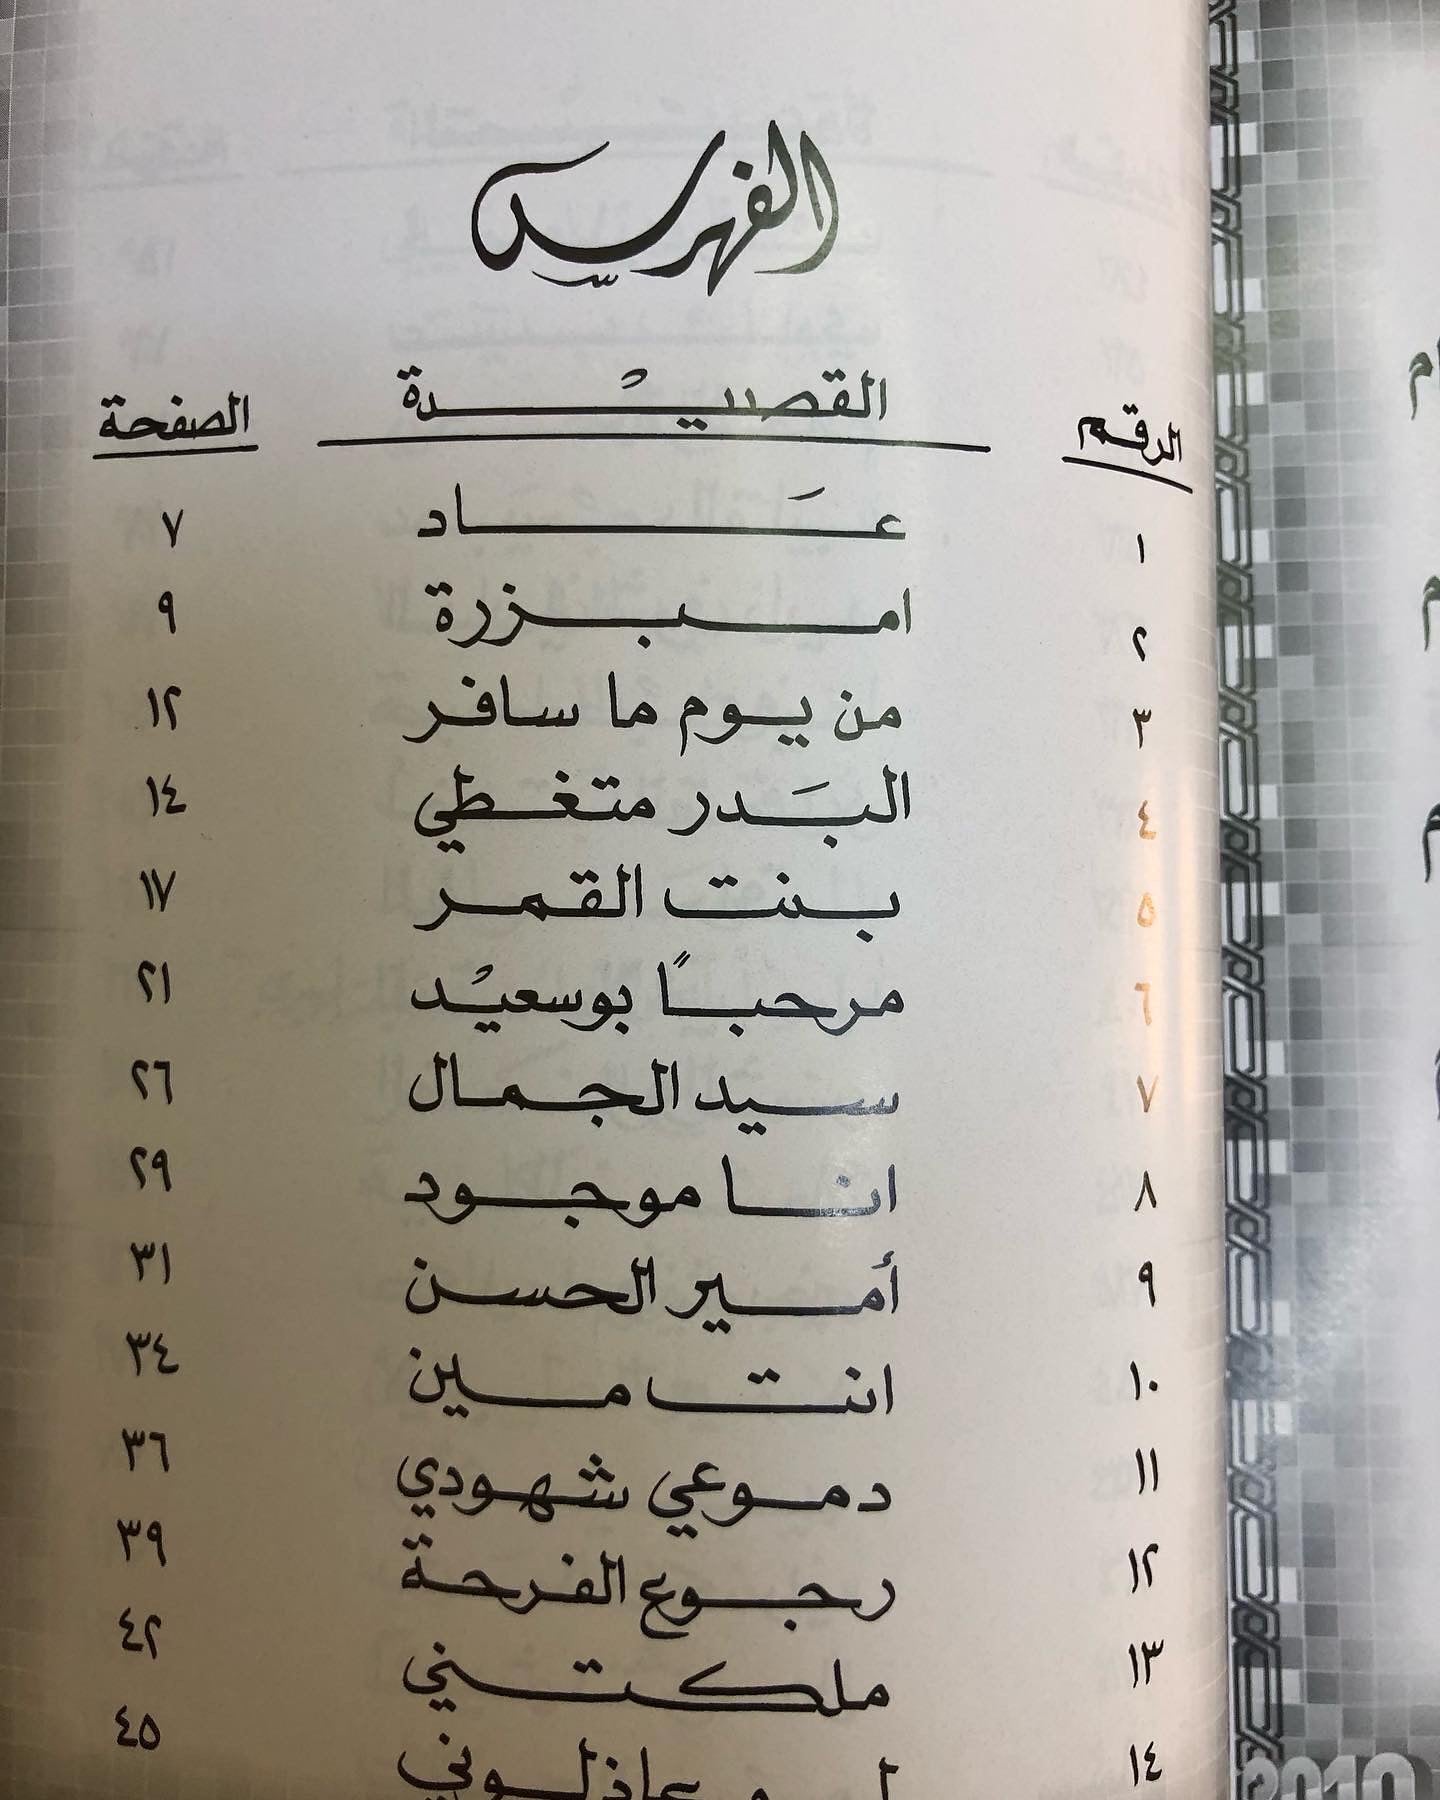 الفهرس
الرقم القصيدة الصفحة
١ عَاد ٧
٢ امبزرة ٩
٣ من يوم ما سافر ١٢
٤ البَدر متغطي ١٤
٥ بنت القمر ١٧
٦ مرحباً بوسعيْد ٢١
٧ سيد الجمال ٢٦
٨ انا موجود ٢٩
٩ أمير الحسن ٣١
١٠ انت مين ٣٤
١١ دموعي شهودي ٣٦
١٢ رجوع الفرحة ٣٩
١٣ ملكتني ٤٢
١٤ عاذلوني ٤٥
2010